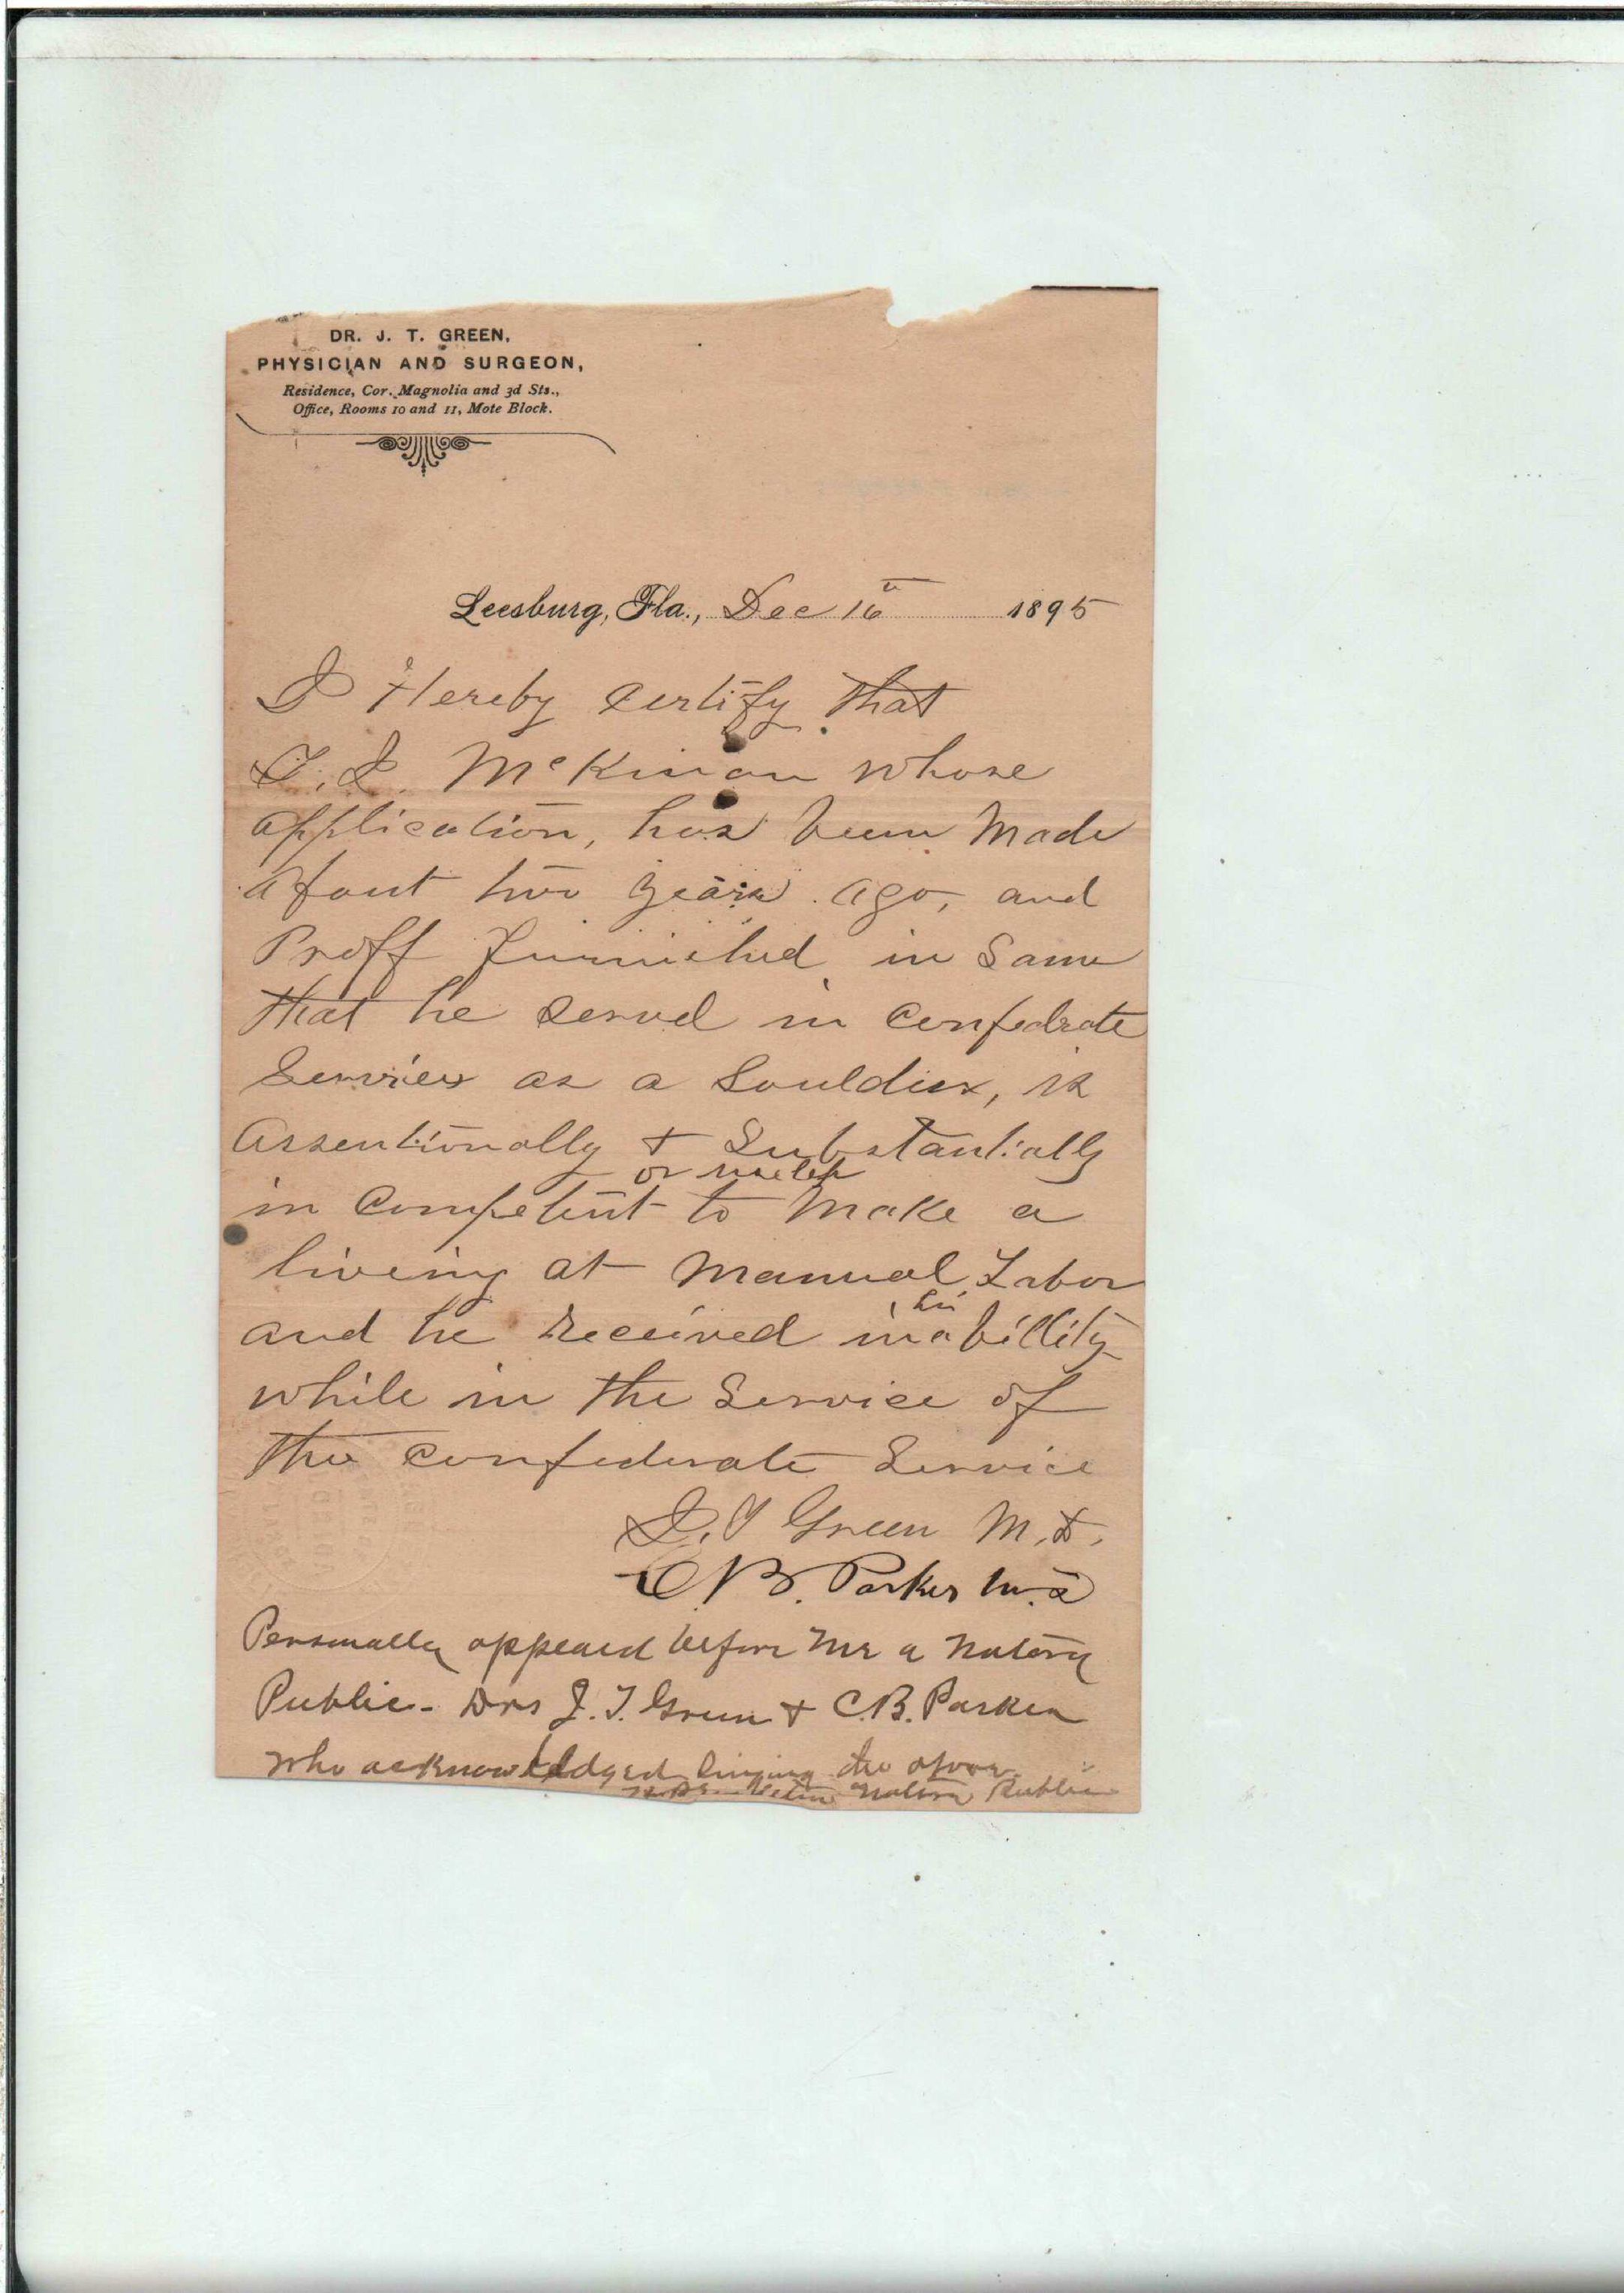 DR. J. T. GREEN,
PHYSICIAN AND SURGEON,
Residence, Cor. Magnolia and 3d Sts.,
Office, Rooms 10 and 11, Mote Block.
Leesburg, Fla., Dec 16th 1895
I Hereby certify that
McKinon whose
application, has been made
about two years ago, and
Proff Furnished in Same
that he served in Confedrate
Services as a Souldier, is
Assentionally & Substantially
or
in Competent to make a
living at manual Labor
his
and he received inabillity
while in the Service of
the Confederate Service
J. T Green M.D.
C. B. Parker M.D
Personally appeard before me a Notary
Public - Drs J. T. Green & C. B. Parker
who acknowledged signing the above
Notary Public